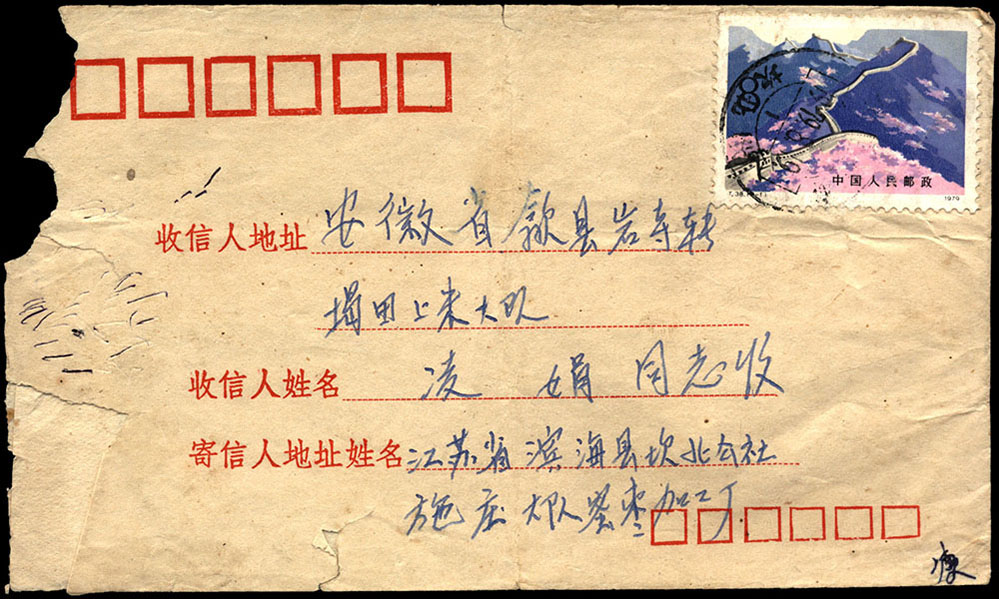 中国人民邮政
1979
收信人地址 安徽省歙县岩寺转
塌田上来大队
收信人姓名 凌 娟 同志收
寄信人地址姓名 江苏省滨海县坎北公社
施庄大队蜜枣加工厂